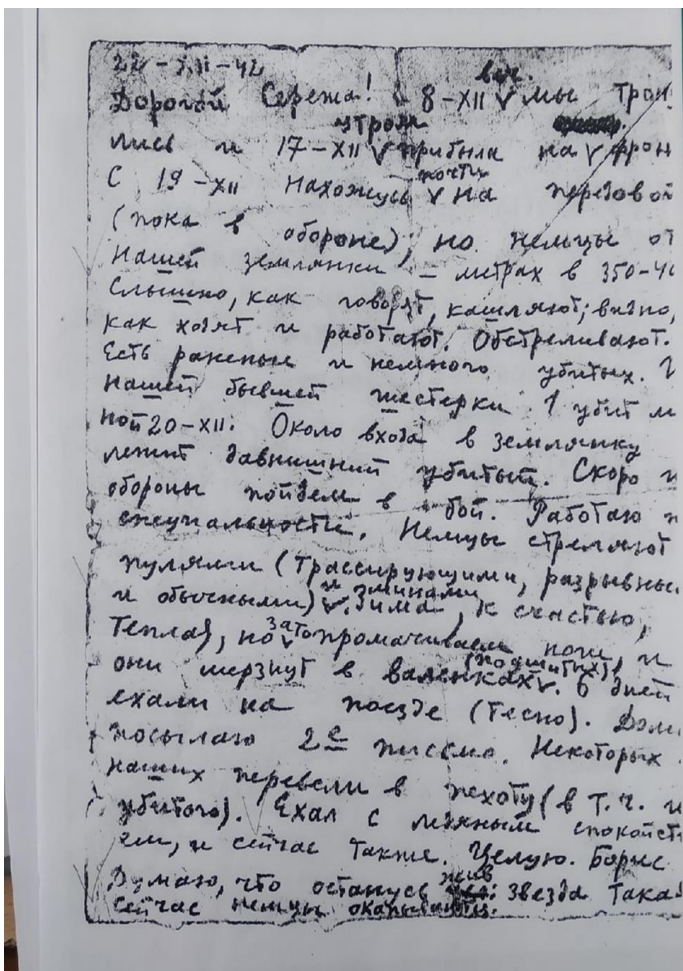 22-XII-42
Дорогой Сережа! 8-XII веч. мы трон
лись и 17-XII утром прибыли на фрон
С 19-XII нахожусь почти на передовой
(пока в обороне), но немцы от
нашей землянки – метрах в 350-40
Слышно, как говорят, кашляют; видно,
как ходят и работают. Обстреливают.
Есть раненые и немного убитых.
нашей бывшей шестерки 1 убит м
ной 20-XII. Около входа в землянку
лежит давнишний убитый. Скоро и
обороны пойдем в бой. Работаю п
специальности. Немцы стреляют
пулями (трассирующими, разрывны
и обычными) и минами. Зима, к счастью,
теплая, но зато промачиваем ноги, и
они мерзнут в валенках (подшитых). 6 дней
ехали на поезде (тесно). Дом
посылаю 2е письмо. Некоторых
наших перевели в пехоту (в т.ч. и
убитого). Ехал с ледяным спокойст
ем, и сейчас также. Целую. Борис
Думаю, что останусь жив: звезда така
сейчас немцы окапываются.